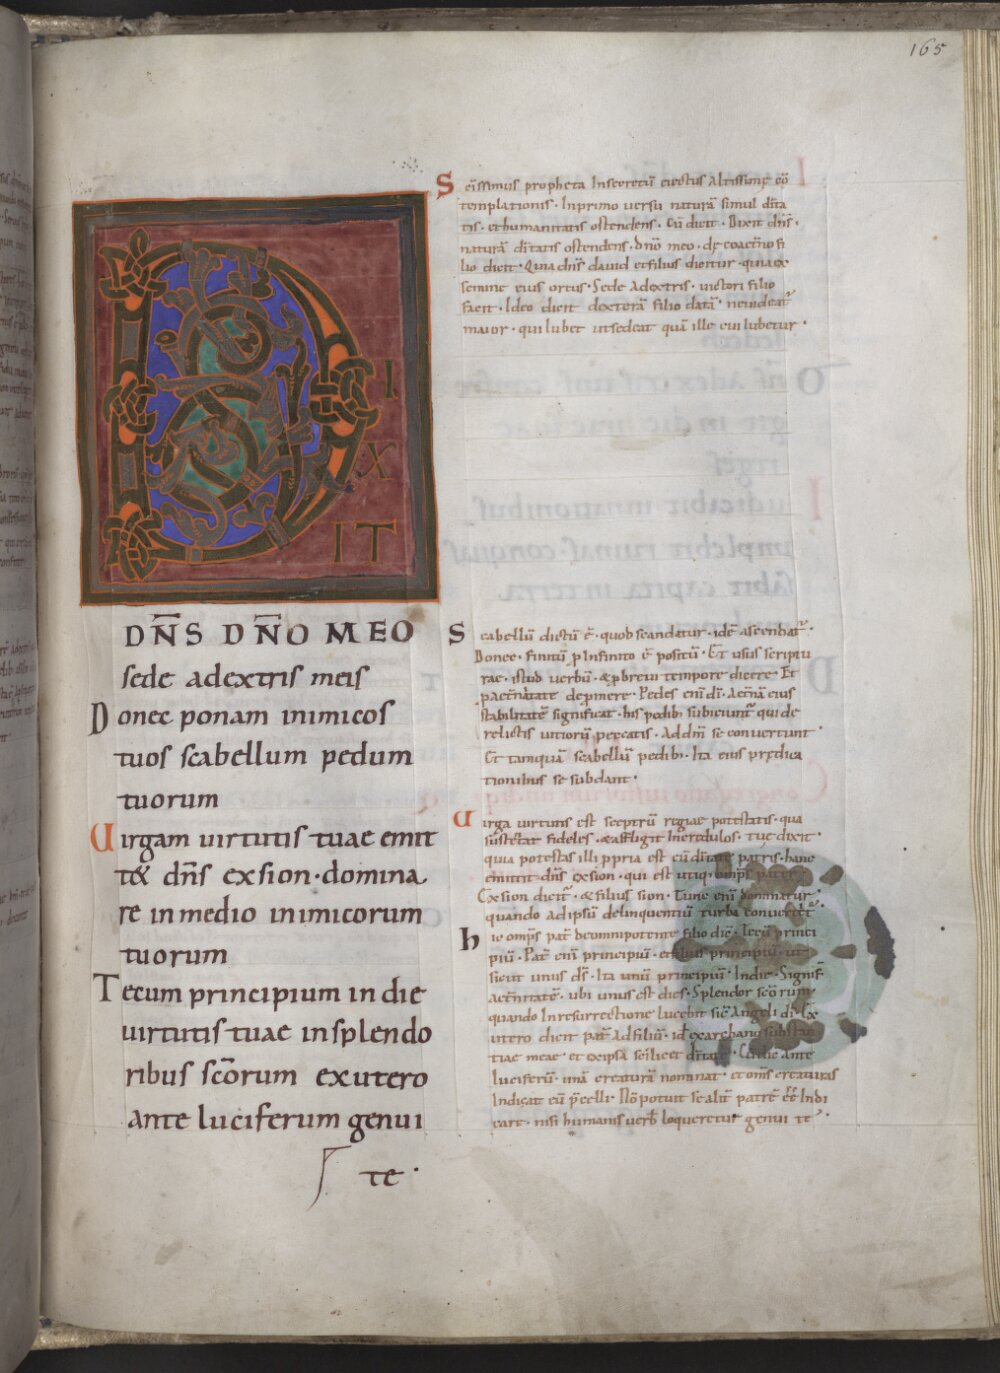 165
D
I
X
IT
DN̄S DN̄O MEO
sede adextris meis
Donec ponam inimicos
tuos scabellum pedum
tuorum
Uirgam uirtutis tuae emit
t& dn̄s exsion·domina
re inmedio inimicorum
tuorum
Tecum principium in die
uirtutis tuae insplendo
ribus scōrum exutero
ante luciferum genui
te·
templationis· Inprimo uersu naturā simul
tis· ethumanitatis ostendens· Cū dicit· Dixit dn̄s·
naturā ostendens· dn̄o meo· de
lio dicit· Quia dn̄s dauid etfilius dicitur· quia ex
semine eius ortus· Sede Adextris· uictori filio
facit· Ideo dicit dexterā filio datā·
maior· qui iubet utsedeat quā ille cui iubetur·
Scabellū dictū ē· quod scandatur· idē ascendat̄·
Donec· finitū p Infinito ē positū· Et usus scriptu
rae· istud uerbū· &pbreui tempore dicere Et
Pedes enī dī·
stabilitatē significat· his pedib; subiciunt̄ qui de
relictis uitiorū peccatis· Addm̄ se conuertunt·
Et tamquā scabellū pedib; Ita eius predica
tionibus se subdant·
Uirga uirtutis est sceptrū regiae potestatis· qua
fideles· &affligit Incredulos· tuę dixit·
quia potestas illi ppria est cū patris· hanc
emittit dn̄s exsion· qui est utiq;
Exsion dicit̄· & filius sion· Tunc enī dominatur
quando Adipsū delinquentiū turba
hic omps pat̄ deomnipotente filio dic̄· Tecū princi
piū· Pat̄ enī principiū· etfilius principiū·
sicut unus ds̄· Ita unū principiū· Indie· Signif̄
ubi unus est dies· Splendor scōrum
quando Inresurrectione lucebit sic̄ Angeli dī· Ex
utero dicit pat̄ Adfiliū·
tiae meae· et exipsa scilicet ante
luciferū· unā creaturā nominat· et oms̄ creaturas
Indicat eū Nō potuit
care· nisi humanis uerb̄ loqueretur genui te·